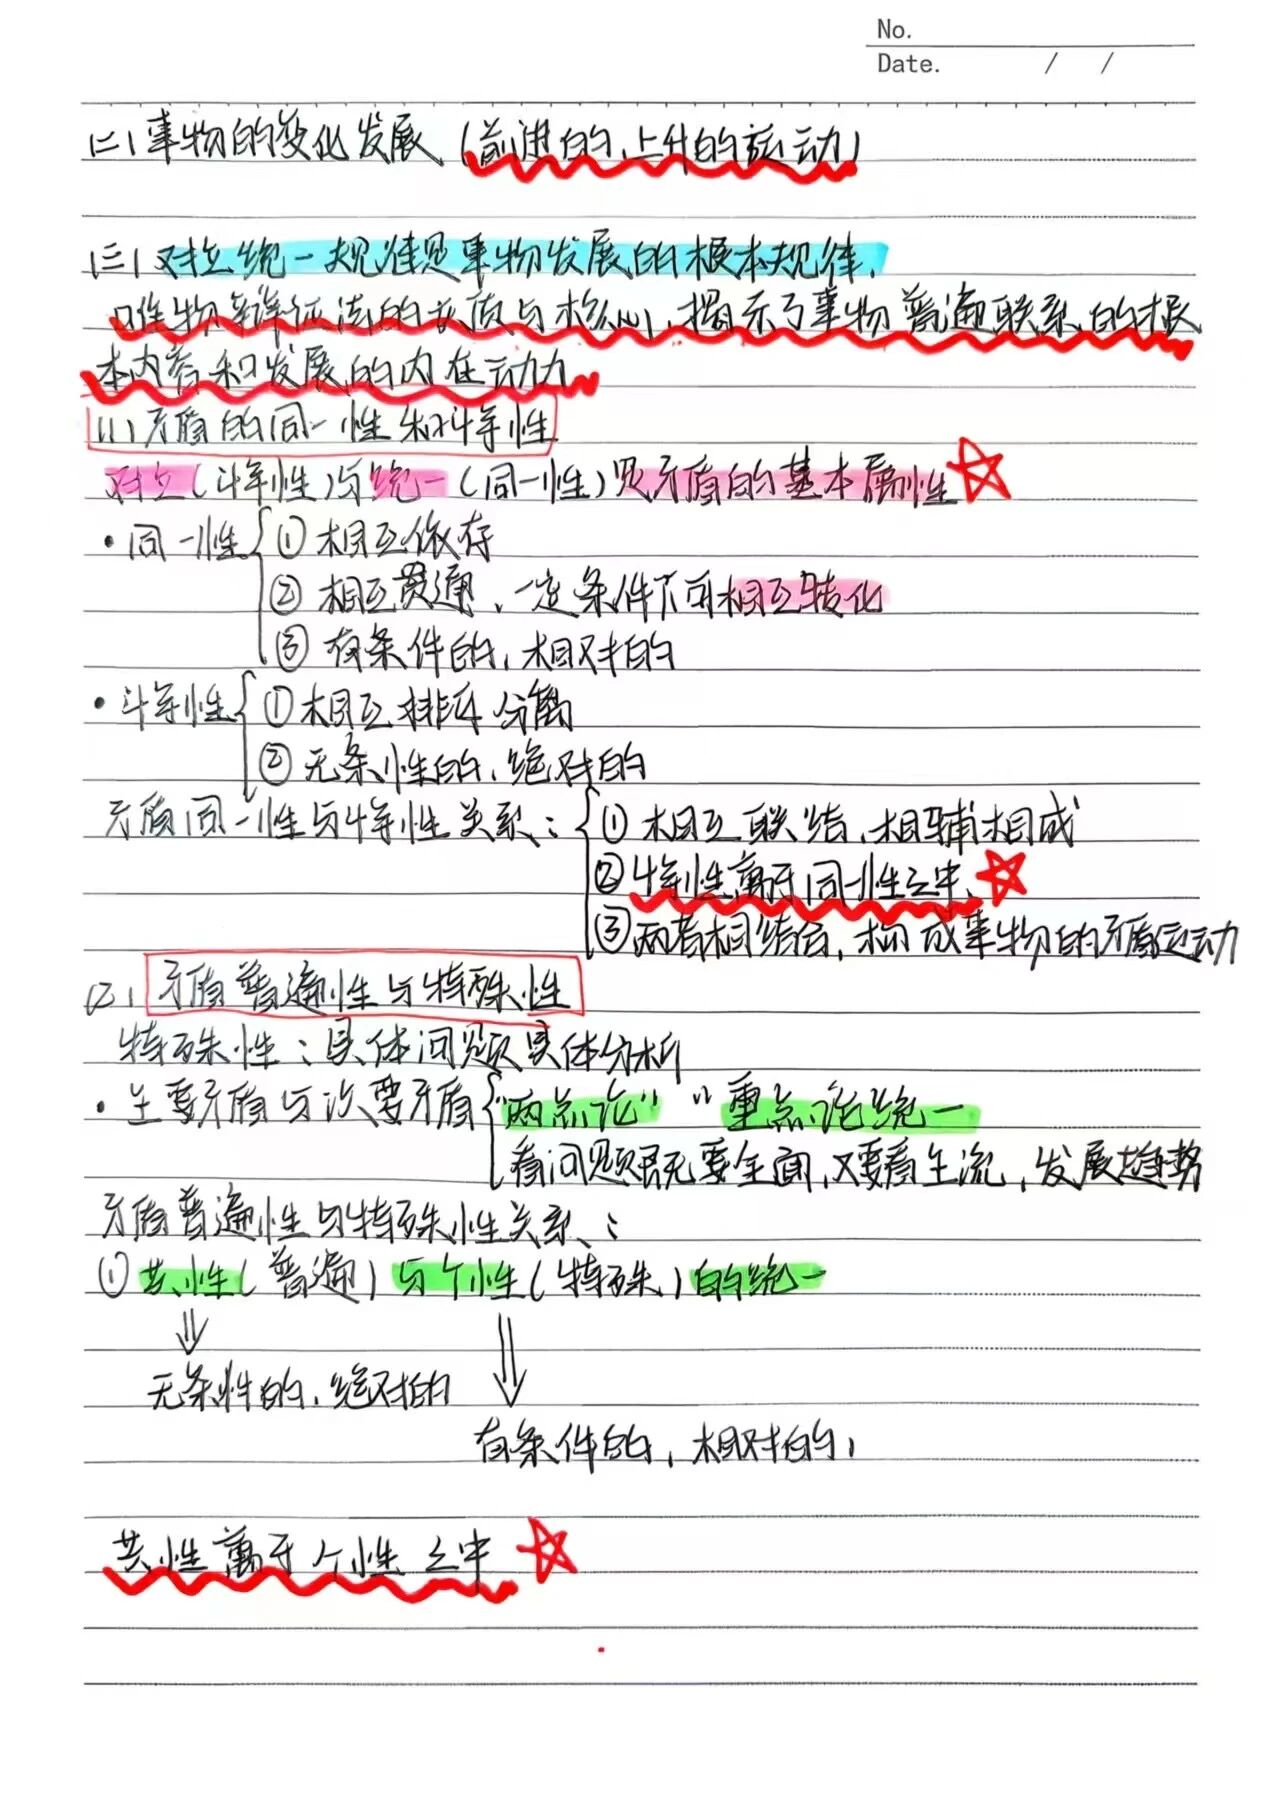 No.
Date. / /
(二)事物的变化发展(前进的、上升的运动)
(三)对立统一规律是事物发展的根本规律,
唯物辩证法的实质与核心,揭示了事物普遍联系的根
本内容和发展的内在动力
(1)矛盾的同一性和斗争性
对立(斗争性)与统一(同一性)是矛盾的基本属性
·同一性{①相互依存
②相互贯通、一定条件下可相互转化
③有条件的,相对的
·斗争性{①相互排斥分离
②无条性的,绝对的
矛盾同一性与斗争性关系:{①相互联结,相辅相成
②斗争性寓于同一性之中、
③两者相结合,构成事物的矛盾运动
(2)矛盾普遍性与特殊性
特殊性:具体问题具体分析
·主要矛盾与次要矛盾{"两点论" "重点论统一
看问题既要全面,又要看主流,发展趋势
矛盾普遍性与特殊性关系:
①共性(普遍)与个性(特殊)的统一
无条性的,绝对的
有条件的,相对的,
共性寓于个性之中